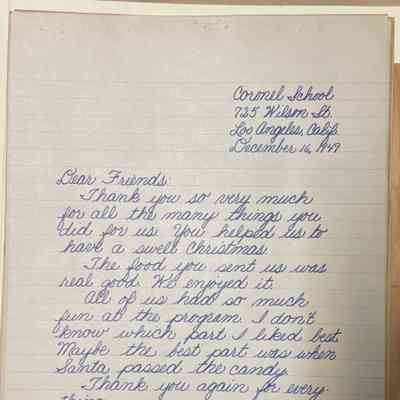 Coronel School
725 Wilson St.
Los Angeles, Calif.
December 16, 1949
Dear Friends:
Thank you so very much
for all the many things you
did for us. You helped us to
have a swell Christmas.
The food you sent us was
real good. We enjoyed it.
All of us had so much
fun at the program. I don't
know which part I liked best.
Maybe the best part was when
Santa passed the candy.
Thank you again for every-
thing.